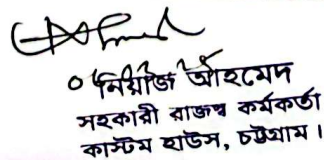 নিয়াজ আহমেদ
সহকারী রাজস্ব কর্মকর্তা
কাস্টম হাউস, চট্টগ্রাম।